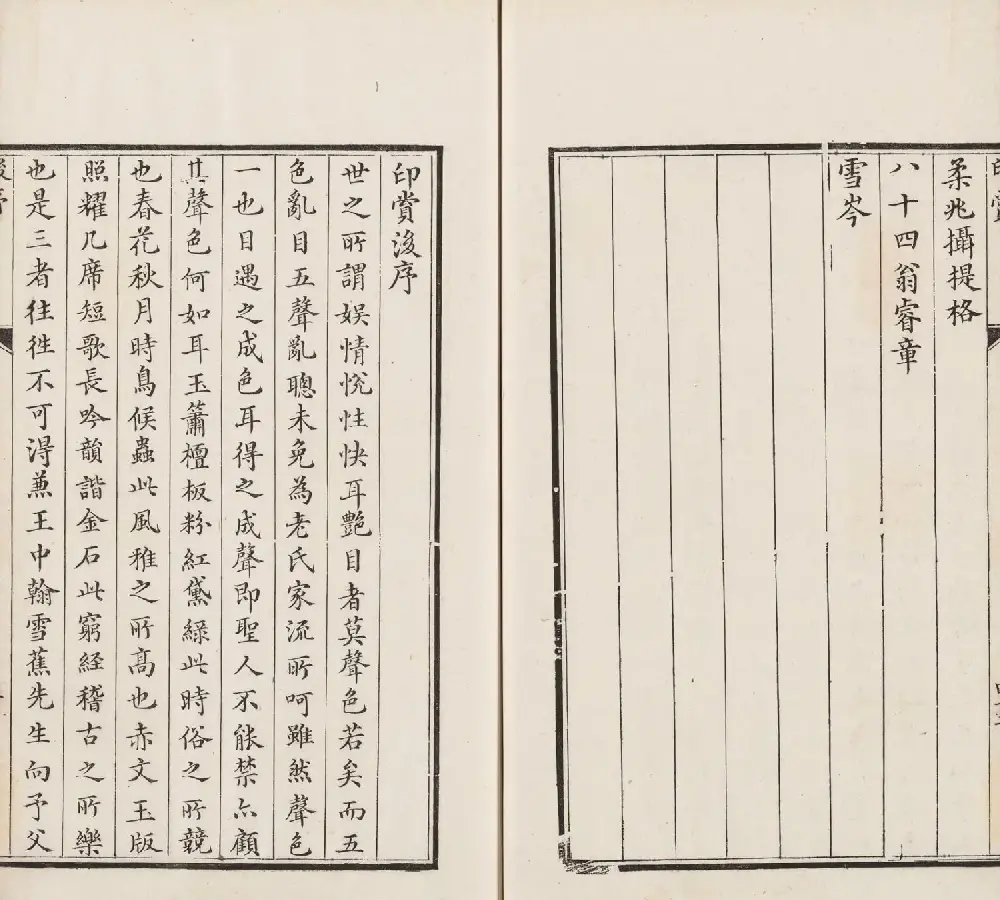 印賞
柔兆攝提格
八十四翁睿章
雪岑
印賞後序
世之所謂娛情悅性快耳艷目者莫聲色若矣而五
色亂目五聲亂聰未免為老氏家流所呵雖然聲色
一也目遇之成色耳得之成聲即聖人不能禁亦顧
其聲色何如耳玉簫檀板粉紅黛綠此時俗之所競
也春花秋月時鳥候蟲此風雅之所高也赤文玉版
照耀几席短歌長吟韻諧金石此窮經稽古之所樂
也是三者往徃不可淂蒹王中翰雪蕉先生向予父